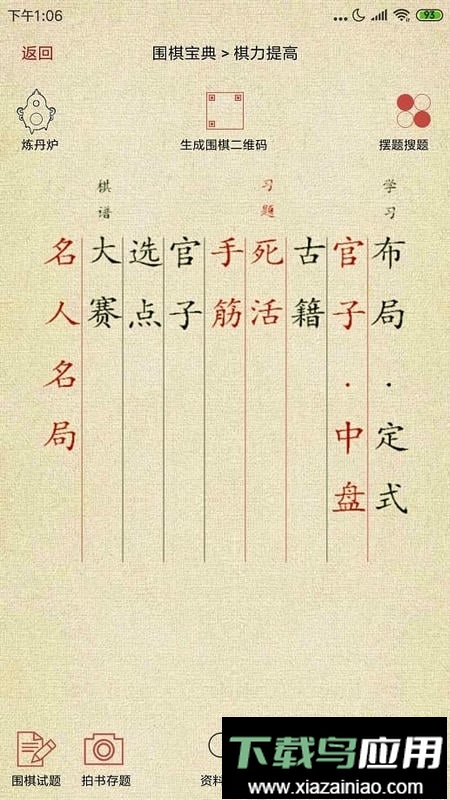 下午1:06
93
返回
围棋宝典 > 棋力提高
炼丹炉
生成围棋二维码
摆题搜题
学习
习题
棋谱
布局·定式
官子·中盘
古籍
死活
手筋
官子
选点
大赛
名人名局
围棋试题
拍书存题
资料
下载鸟应用
www.xiazainiao.com